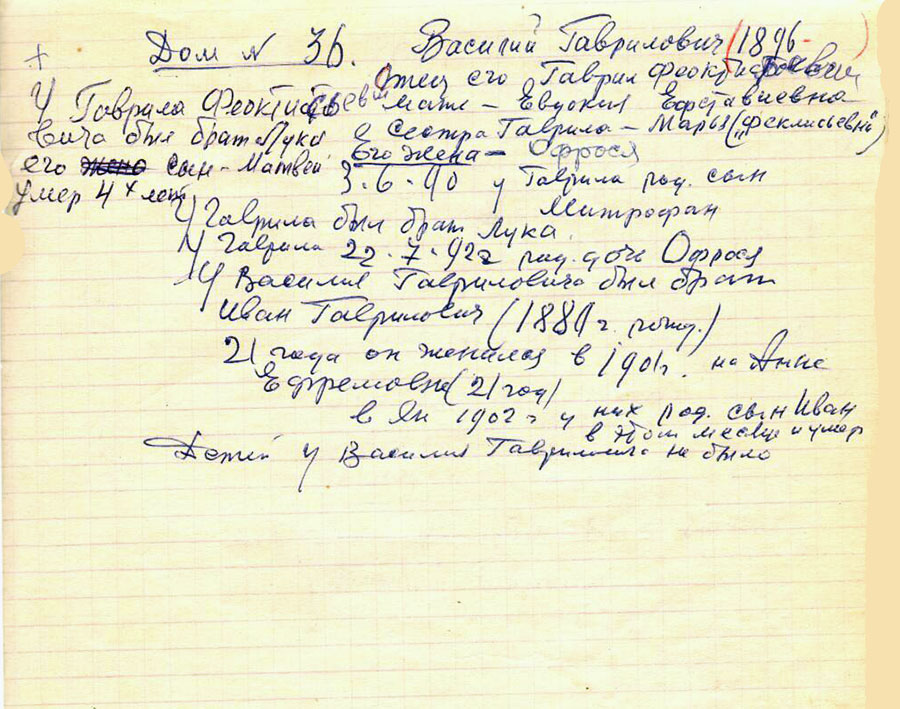 + Дом N 36. Василий Гаврилович (1896-
отец его Гаврил Феоктистович
мать - Евдокия Евставиевна
сестра Гаврила - Марья ("Феклисьевна")
Его жена - Офрося
3.6.90 у Гаврила род. сын
Митрофан
У Гаврила Феоктистьевича
вича был брат Лука
его жена сын - Матвей
умер 4х лет
У Гаврила был брат Лука.
У Гаврила 22.7.92г род. дочь Офрося
У Василия Гавриловича был брат
Иван Гаврилович (1880г. рожд.)
21 года он женился в 1901г. на Анне
Ефремовне (21 год)
в Ян 1902г у них род. сын Иван
в этом месяце и умер
Детей у Василия Гавриловича не было